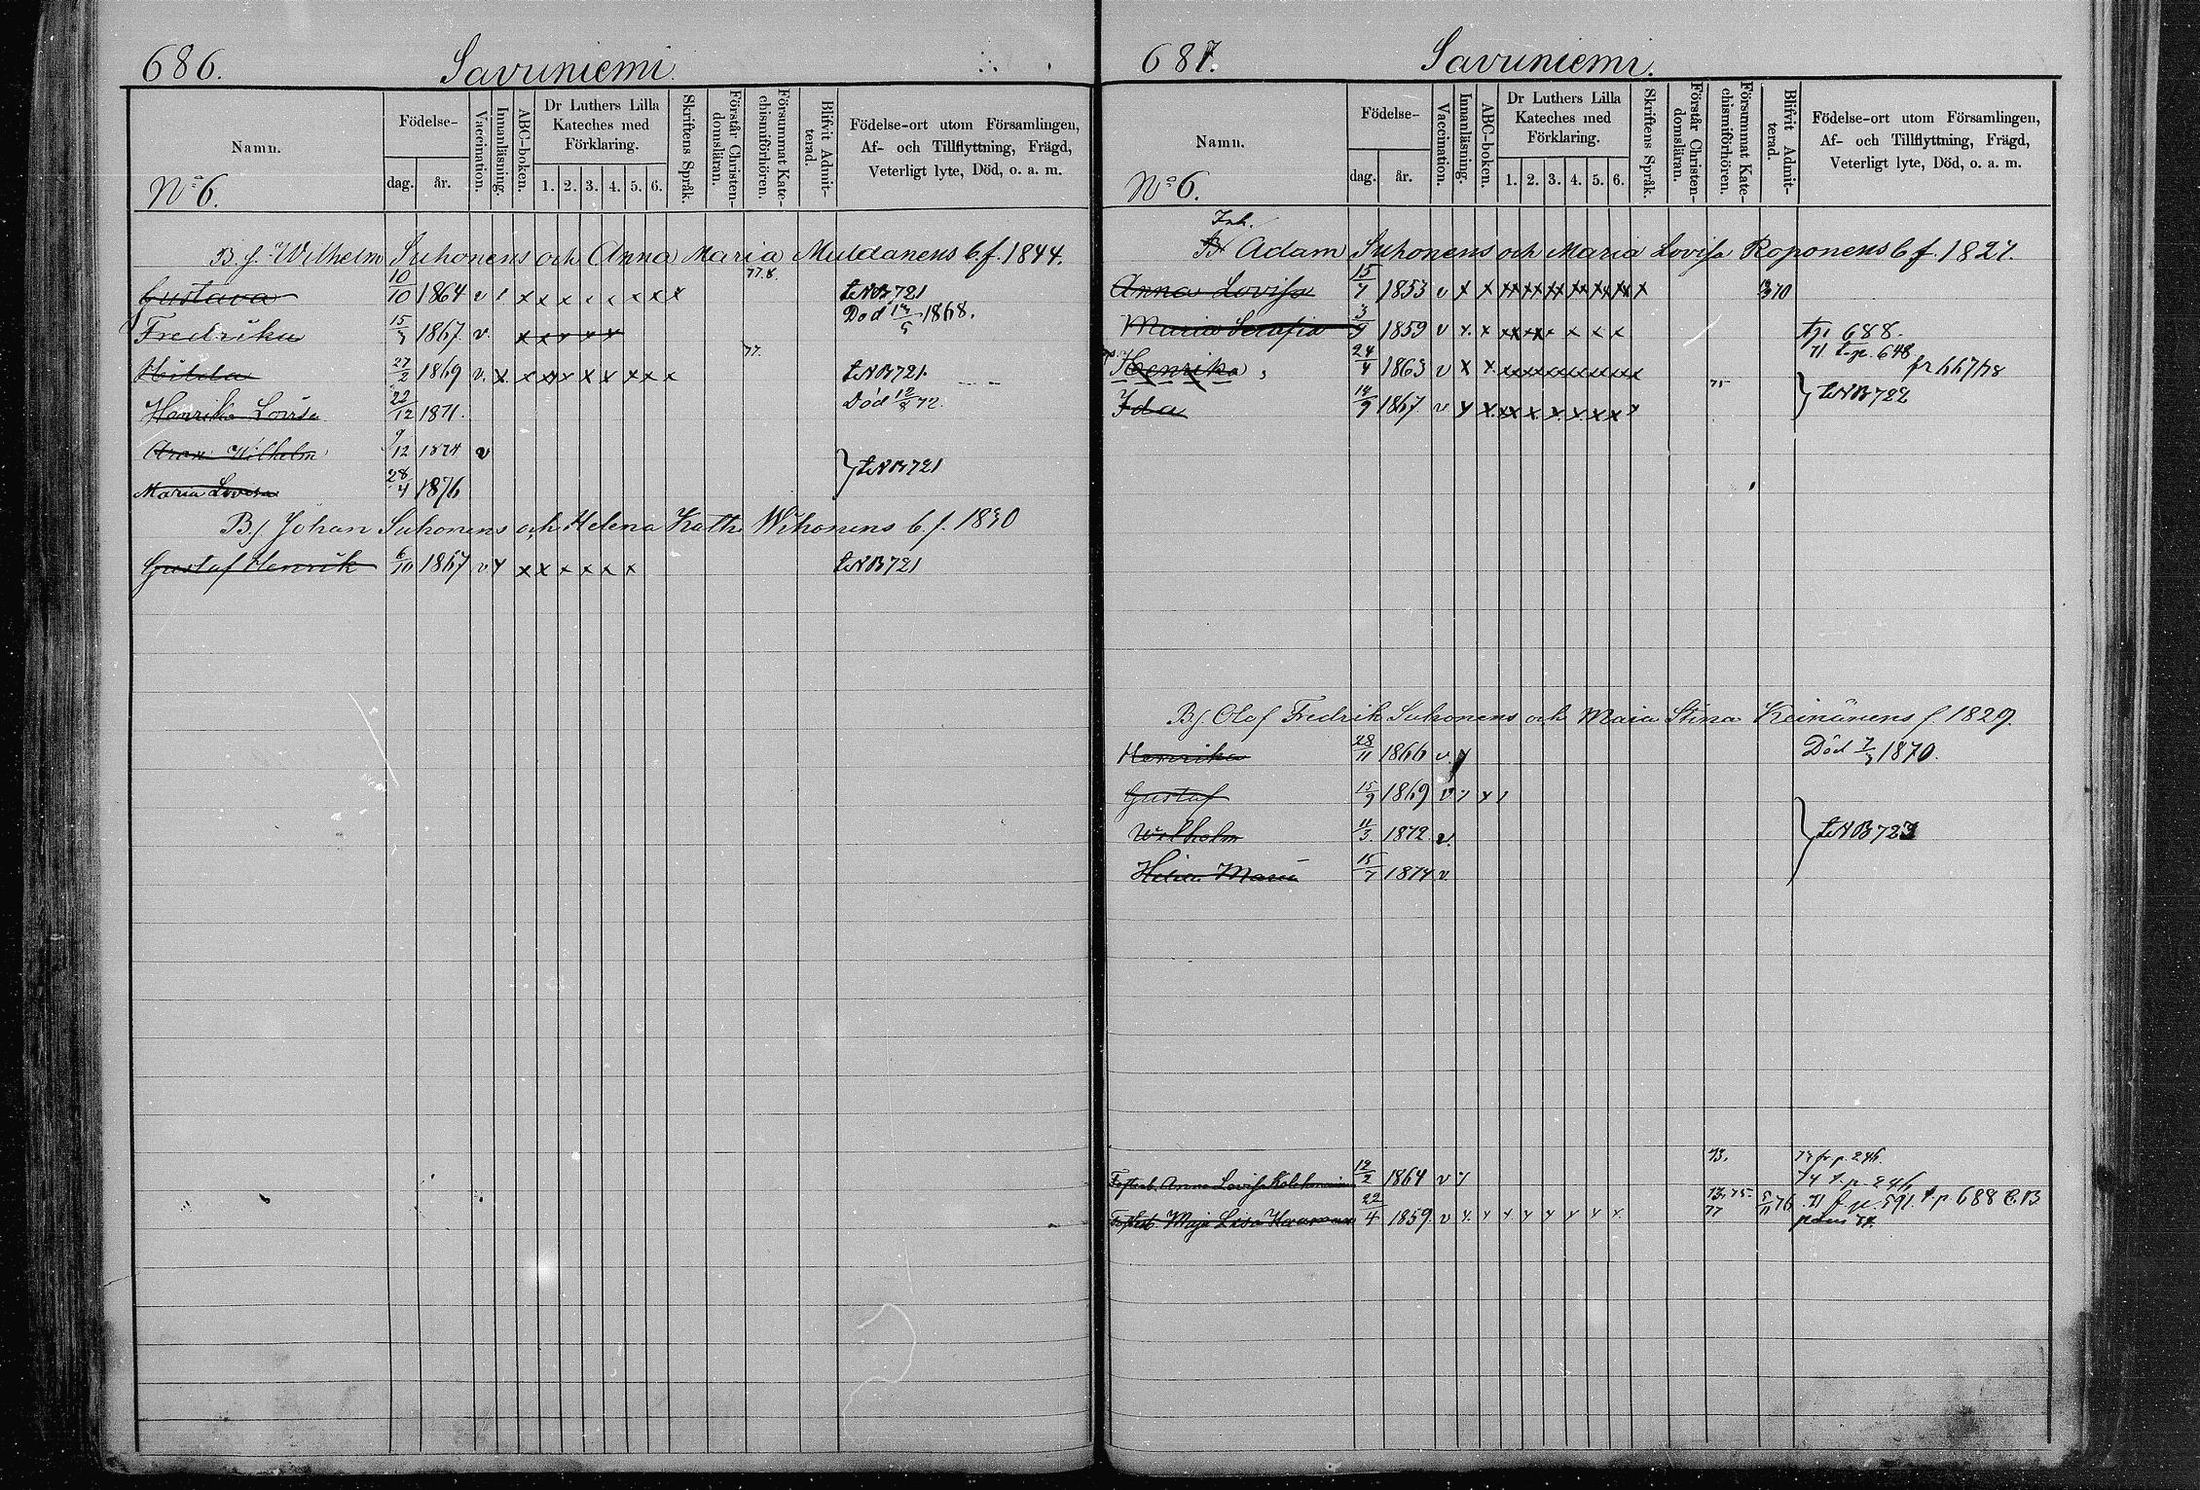 686. Savuniemi.
Namn. Födelse- dag. år. Vaccination. Innanläsning. ABC-boken. Dr Luthers Lilla Kateches med Förklaring. 1. 2. 3. 4. 5. 6. Skriftens Språk. Förstår Christen-domsläran. Försummat Kate-chismiförhören. Blifvit Admit-terad. Födelse-ort utom Församlingen, Af- och Tillflyttning, Frägd, Veterligt lyte, Död, o. a. m.
No 6.
B.f. Wilhelm Suhonens och Anna Maria Muldanens b.f. 1844.
Gustava 10/10 1864 v x x x x x x x x 77.8 t.N.B 721
Fredrika 15/3 1867 v. x x x x x Död 1868.
Hilda 27/2 1869 v. x x x x x x x x x 77. t.N.B 721.
Henrika Lovisa 22/12 1871. Död 72.
Aron Wilhelm 9/12 1874 v
} t.N.B 721
Maria Lovisa 28/4 1876
B.f Johan Suhonens och Helena Kath. Wihonens b.f. 1830
Gustaf Henrik 6/10 1867 v x x x x x x x t.N.B 721
687. Savuniemi.
Namn. Födelse- dag. år. Vaccination. Innanläsning. ABC-boken. Dr Luthers Lilla Kateches med Förklaring. 1. 2. 3. 4. 5. 6. Skriftens Språk. Förstår Christen-domsläran. Försummat Kate-chismiförhören. Blifvit Admit-terad. Födelse-ort utom Församlingen, Af- och Tillflyttning, Frägd, Veterligt lyte, Död, o. a. m.
No 6.
Inh.
Bf Adam Suhonens och Maria Lovisa Roponens b f. 1827.
Anna Lovisa 15/7 1853 v x x xx xx xx xx xx xx x 70
Maria Serafia 3/9 1859 v x x xx xx x x x x t.p. 688.
71 t.p. 648
Henrika 24/4 1863 v x x xx xx xx xx xx xx fr 667/78
Ida 14/9 1867 v x x xx x x x x x x 75 } t.N.B 722
B.f Olof Fredrik Suhonens och Maia Stina Keinänens f 1829.
Henrika 28/11 1866 v x Död 7/3 1870.
Gustaf 15/9 1869 v x x
Wilhelm 11/3 1872 v. } t.N.B 723
Maria 15/7 1874 v.
73. 73 fr p. 246.
Fosterb. Anna Lovisa 12/2 1864 v x 74 t p. 246
Fosterb. Maja Lisa 22/4 1859. v x x x x x x x x 73, 75 77 5/11 76 71 f p. 591. t p 688 C.B